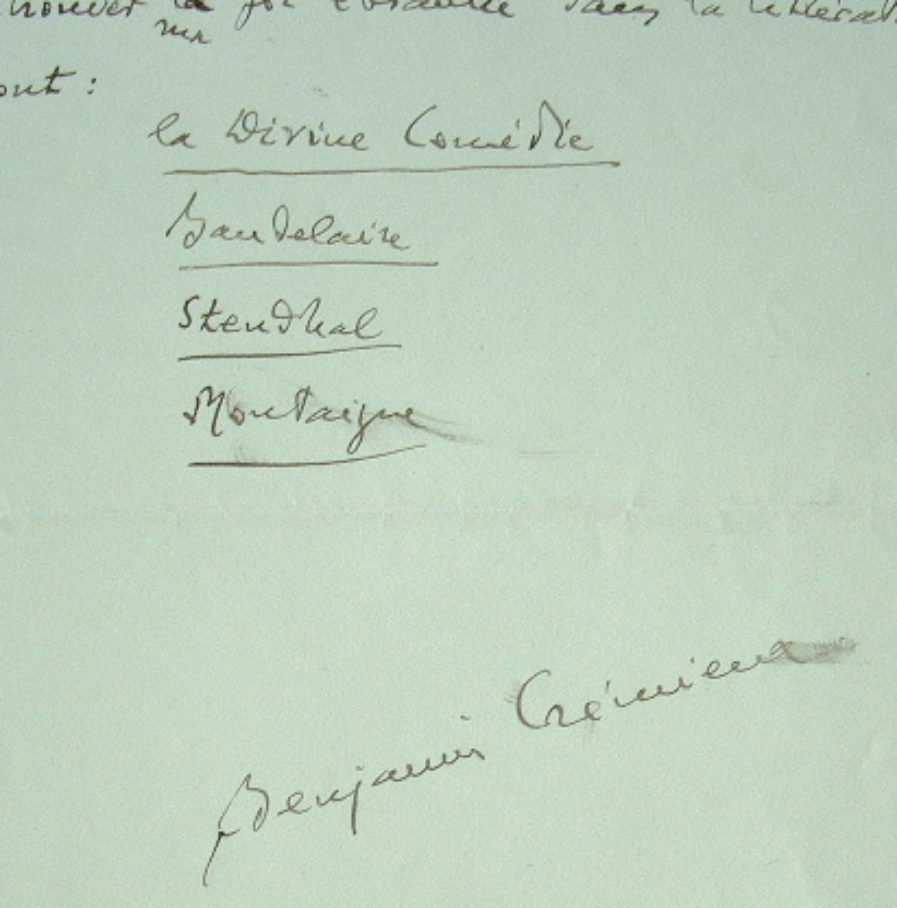 la foi ébranlée dans la littérat
sur
ont :
la Divine Comédie
Baudelaire
Stendhal
Montaigne
Benjamin Crémieux